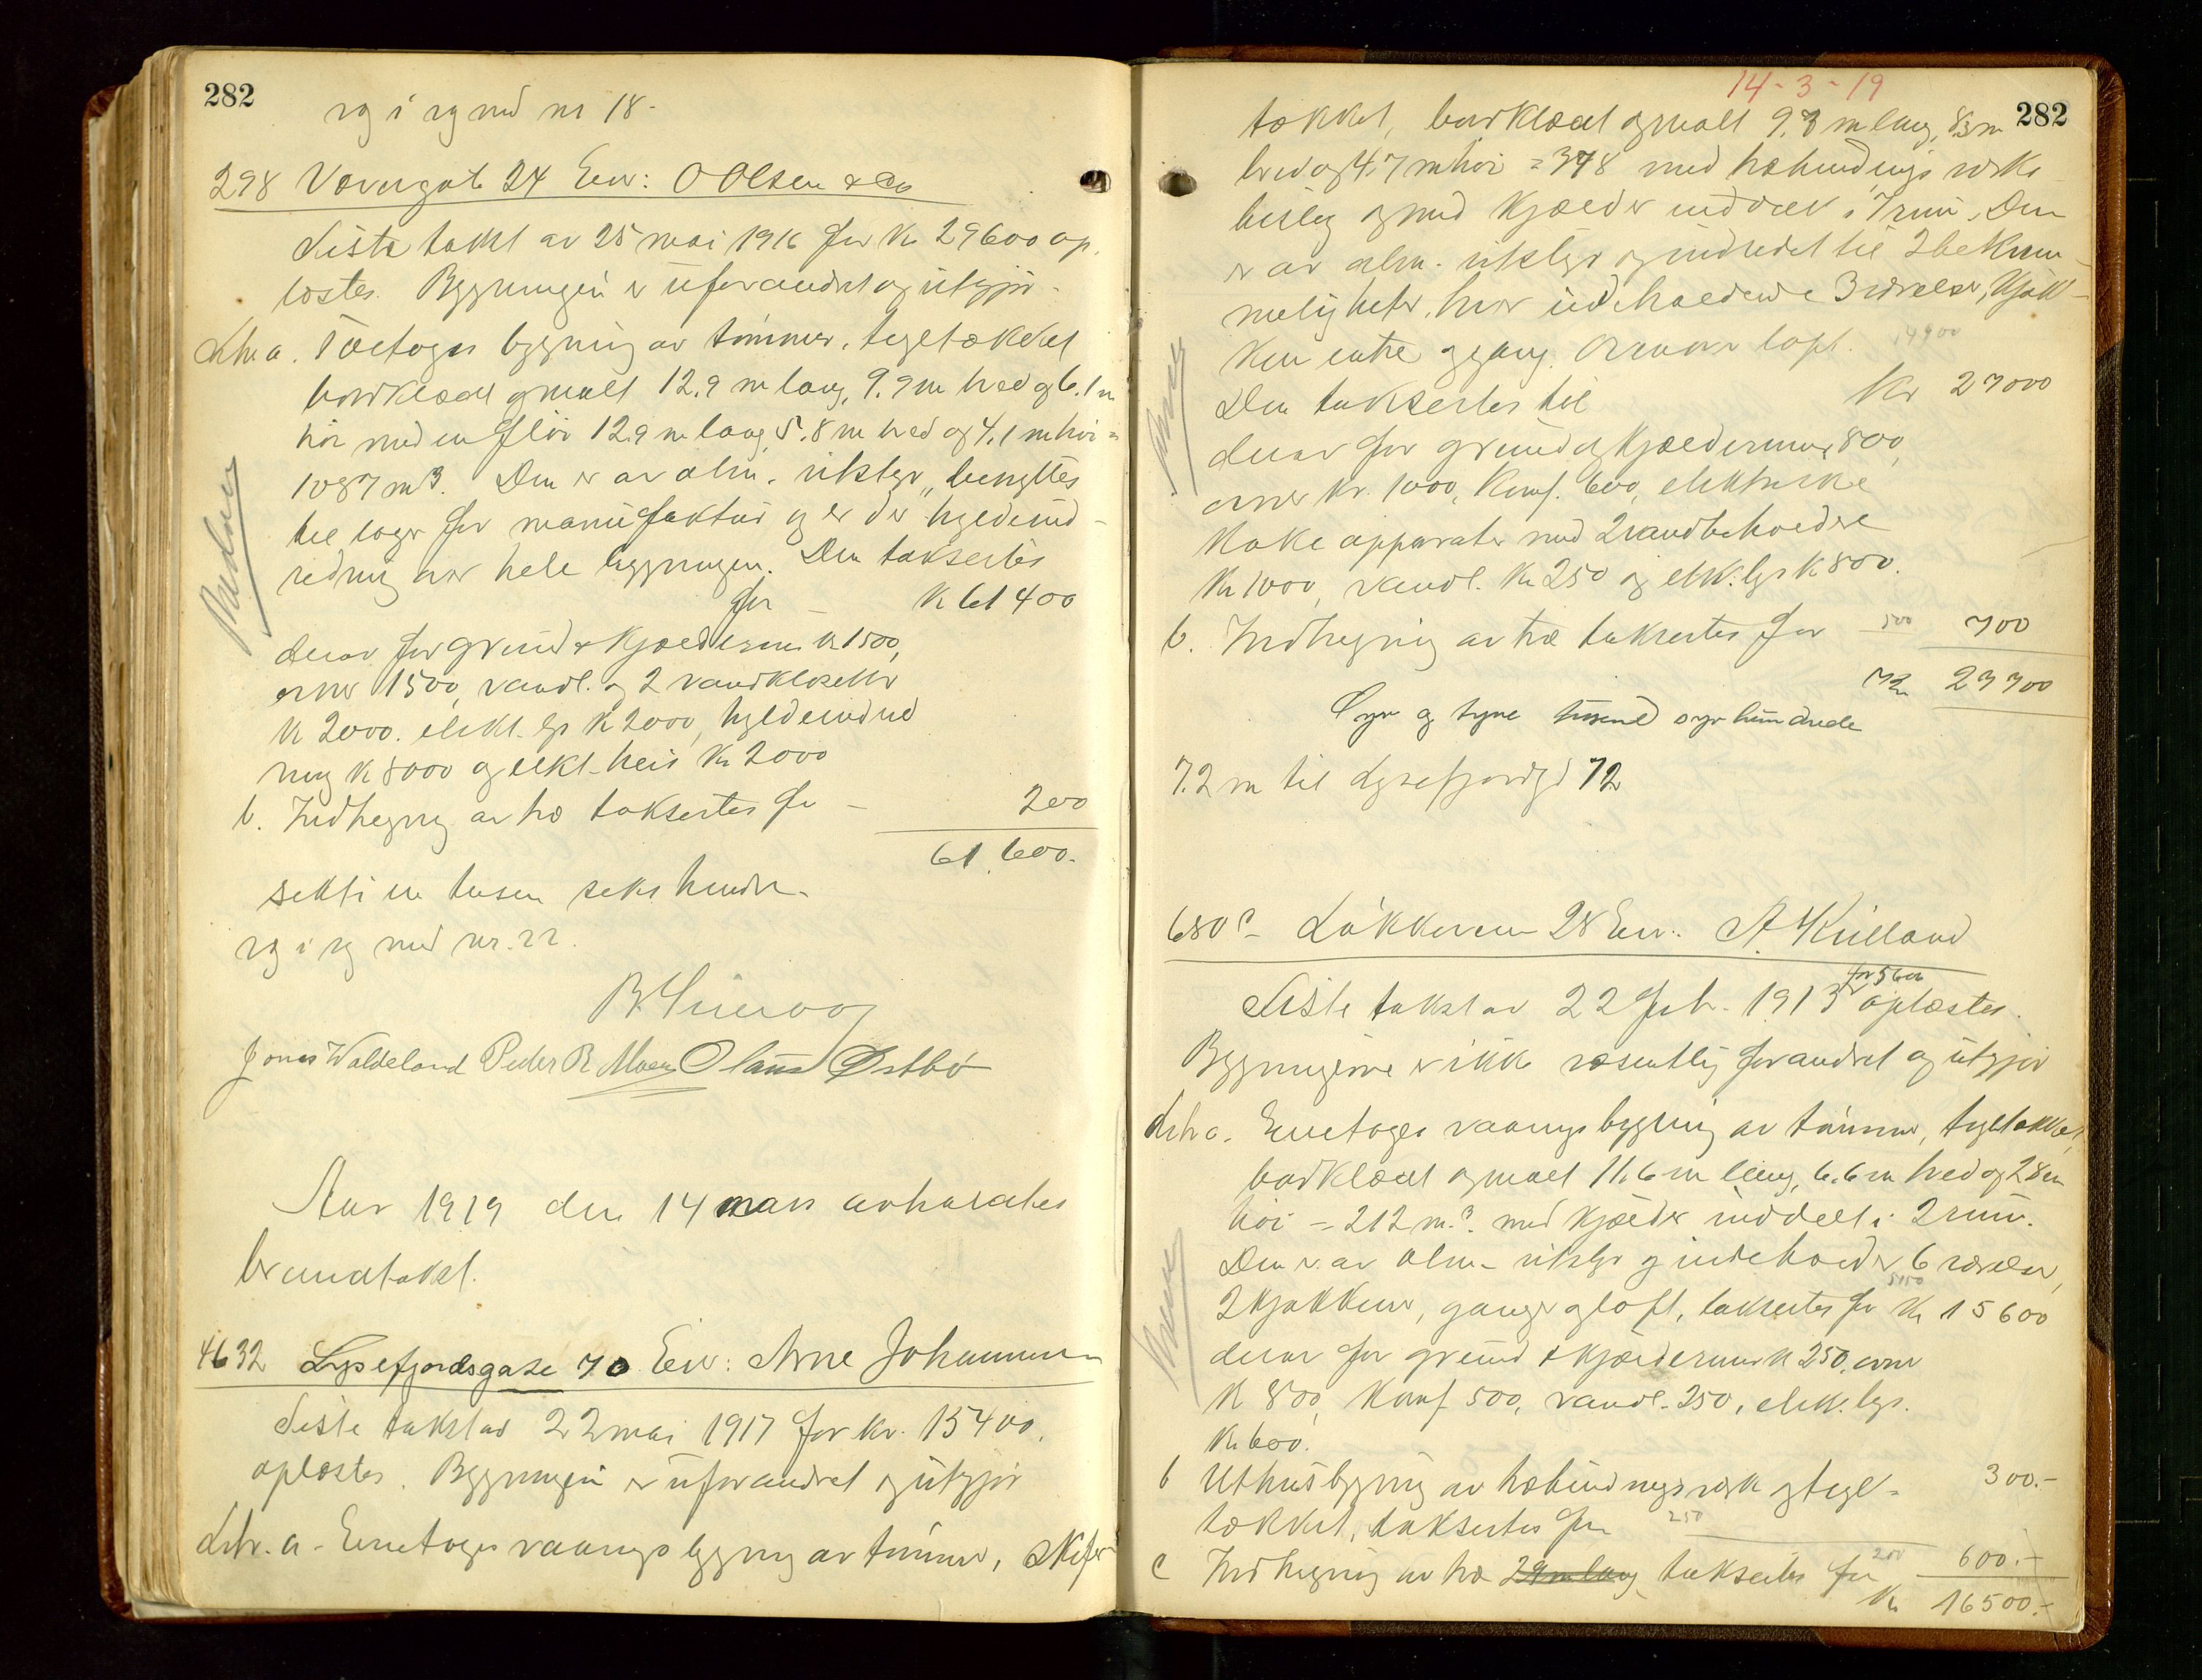 282
vg i vg med nr 18.
298 Verergate 24 Eier: O Olsen & Co
Siste takst av 25 mai 1916 for kr 29600 op
læstes. Bygningen er uforandret og utgjør
Litr. a. Toetages bygning av tømmer, tegltækket
bordklædt og malt 12.9 m lang, 9.9 m bred og 6.1 m
høi med en fløi 12.9 m lang 5.8 m bred og 4.1 m høi =
1087 m3. Den er av alm. utstyr, benyttes
til lager for manufaktur og er der hyldeind-
redning over hele bygningen. Den takseres
for - kr 61400
derav for grund & kjældermur kr 1500,
ovner 1500, vandl. og 2 vandklosetter
kr 2000. elekt. lys kr 2000, hyldeindred
ning kr 8000 og elekt. heis kr 2000
b. Indhegning av træ takseres for - 200
61.600.
sekti en tusen seks hundre.
vg i vg med nr. 22.
Jonas Waldeland Peder R. Moen Olaus Østbø
Aar 1919 den 14 mars avholdtes
brandtakst.
4632 Lysefjordsgate 70 Eier: Arne Johannesen
Siste takst av 22 mai 1917 for kr. 15400.
oplæstes. Bygningen er uforandret og utgjør
Litr. a. Enetages vaanings bygning av tømmer, skifer
14-3-19
282
tækket, bordklædt og malt 9.7 m lang, 8.3 m
bred og 4.7 m høi = 378 med træbindings
og med kjælder inddelt i 7 rum. Den
er av alm. utstyr og indredet til 2 bekvem-
meligheter, hver indeholdende 3 værelser, kjøk-
ken entre og gang. Ovenover loft. 14900
Den takseres til kr 27000
derav for grund og kjældermur 800,
ovner kr. 1000, komf. 600, elektriske
koke apparater med 2 vandbeholdere
kr 1000, vandl. kr 250 og elek. lys kr 800.
b. Indhegning av træ takseres for 500 700
Kr 27700
Syv og tyve tusend syv hundrede
7.2 m til Lysefjordgt 72
680c - Løkkeveien 28 Eier: A. Kielland
Siste takst av 22 feb. 1913 for 5600 oplæstes.
Bygningerne er ikke væsentlig forandret og utgjør
Litr a. Enetages vaanings bygning av tømmer, tegltækket,
bordklædt og malt 11.6 m lang, 6.6 m bred og 2.8 m
høi = 212 m3. med kjælder inddelt i 2 rum.
Den er av alm. utstyr og indeholder 6 værelser,
2 kjøkkener, ganger og loft, takseres for 5150 kr 15600
derav for grund & kjældermur kr 250. ovner
kr 800, komf 500, vandl. 250, elek. lys.
kr 600.
b Uthusbygning av træbindingsverk og tegl- 300.-
tækket, takseres for 250
c Indhegning av træ 29 m lang takseres for 200 600.-
Kr 16500.-